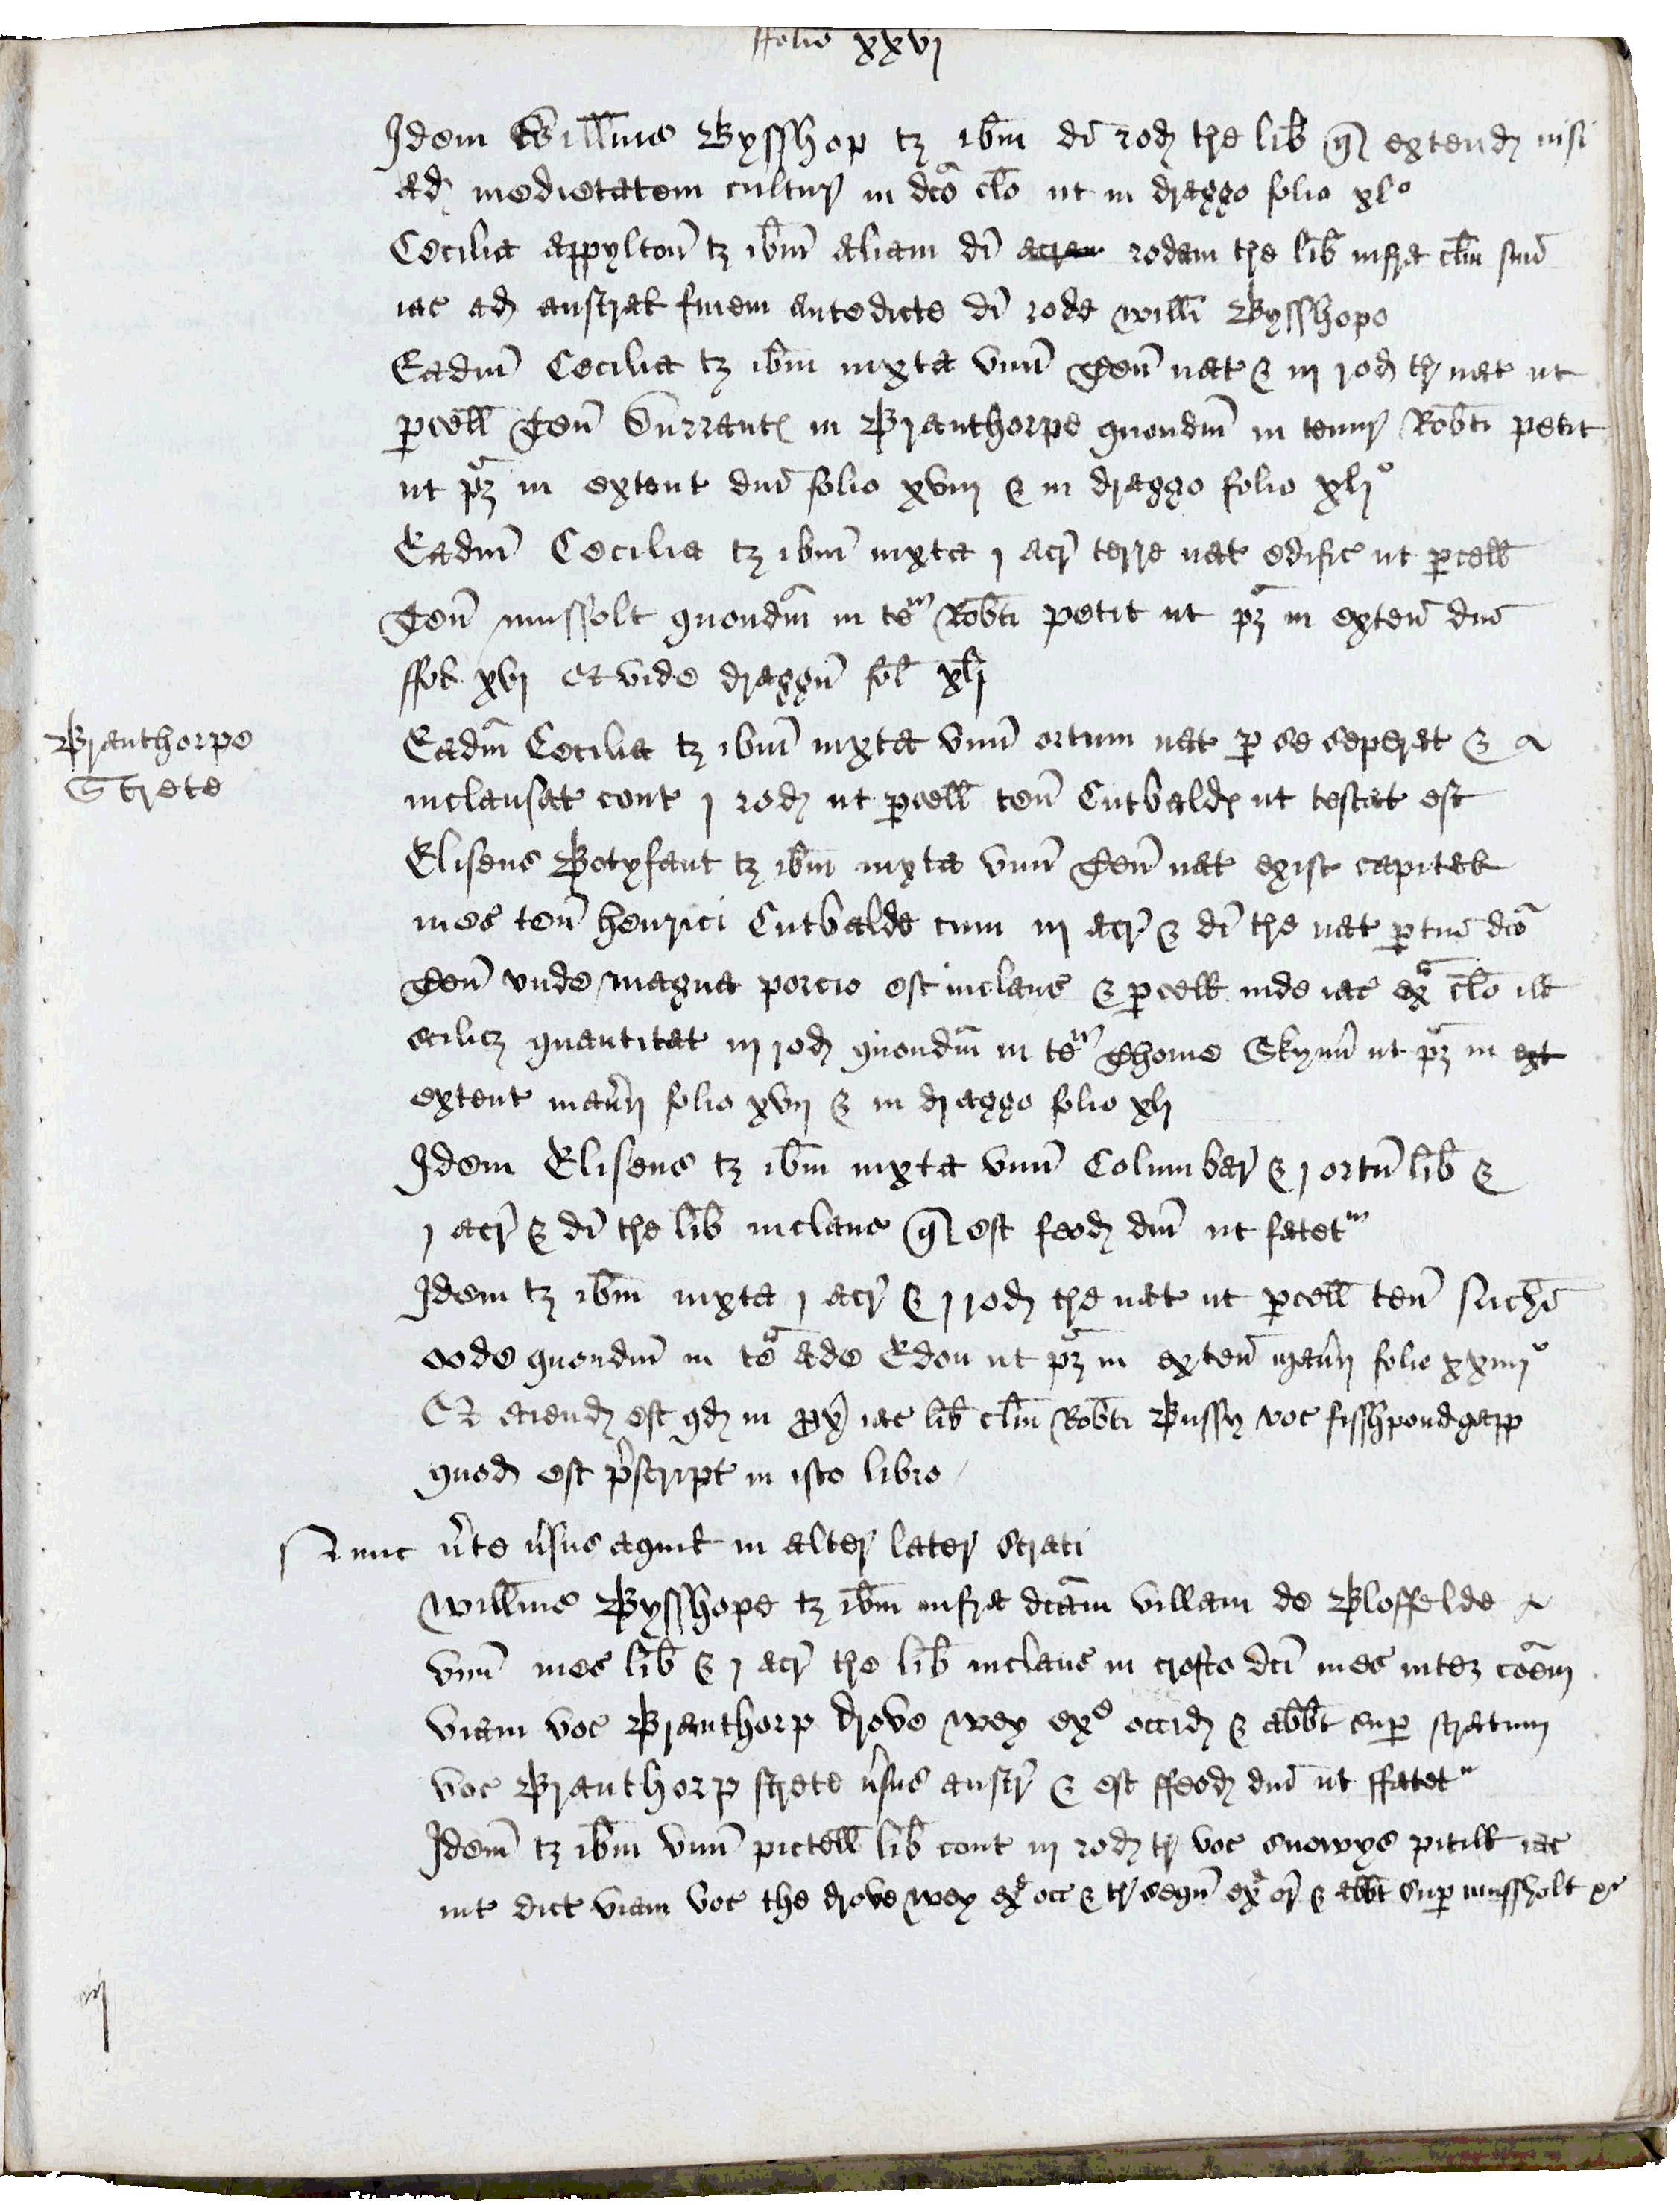 ffolio xxvj
Idem Willm̄s Bysshop tꝫ ib̄m dī rod̄ tr̄e lib̄ q̄ extend̄ nisi
ad medietatem cultur̄ in dc̄o cl̄o ut in draggo folio xlo
Cecilia Appyltoñ tꝫ ib̄m aliam dī acram rodam tr̄e lib̄ infra cl̄m suū
iac̄ ad austral̄ finem antedicte dī rode Will̄i Bysshope
Eadm̄ Cecilia tꝫ ib̄m iuxta vnū teñ nat̄ & iij rod̄ tr̄ nat̄ ut
ꝑcell̄ teñ Durrant̄ in Branthorpe quondm̄ in tenur̄ Rob̄ti Petit
ut pꝫ in extent̄ dnī folio xviij & in draggo folio xljo
Eadm̄ Cecilia tꝫ ib̄m iuxta j acr̄ terre nat̄ edific̄ ut ꝑcell̄
teñ mussolt quondm̄ in ter Rob̄ti Petit ut pꝫ in exteñ dnī
ffol̄ xvj et vide draggū fol̄ xlj
Branthorpe
Strete
Eadm̄ Cecilia tꝫ ib̄m iuxta vnū ortum nat̄ ꝑ se seperat̄ &
inclausat̄ cont̄ j rod̄ ut ꝑcell̄ teñ Cutbald̄ ut testat̄ est
Eliseus Botyfaut tꝫ ib̄m iuxta vnū teñ nat̄ exist̄ capital̄
mes̄ teñ henrici Cutbalde cum iij acr̄ & dī tr̄e nat̄ ꝑtiñ dc̄o
teñ unde magna porcio est inclaus̄ & ꝑcell̄ inde iac̄ exa cl̄o ill̄
scilicꝫ quantitat̄ iij rod̄ quondm̄ in ter Thome Skynn̄ ut pꝫ in ext
extent̄ man̄ij folio xvij & in draggo folio xlj
Idem Eliseus tꝫ ib̄m iuxta vnū Columbar̄ & j ortū lib̄ &
j acr̄ & dī tr̄e lib̄ inclaus̄ q̄ est feod̄ dnī ut fatetr
Idem tꝫ ib̄m iuxta j acr̄ & j rod̄ tr̄e nat̄ ut ꝑcell̄ teñ
ode quondm̄ in ter Ade Edon ut pꝫ in exteñ man̄ij folio xxiiijo
Et sciend̄ est qd̄ in px̄ iac̄ lib̄ cl̄m Rob̄ti Bussy voc̄ fisshpondgapp
quod est p̄script̄ in isto libro
Nunc v̄te v̄sus aquil̄ in alter̄ later̄ strati
Willm̄s Bysshope tꝫ ib̄m infra dc̄am villam de Bloffelde
vnū mes̄ lib̄ & j acr̄ tr̄e lib̄ inclaus̄ in crofto dc̄i mes̄ inter cōem
viam voc̄ Branthorp drove wey exe occid̄ & abb̄t suꝑ stratum
voc̄ Branthorp strete v̄sus austr̄ & est ffeod̄ dnī ut ffatetr
Idem̄ tꝫ ib̄m vnū pictell̄ lib̄ cont̄ iij rod̄ tr̄ voc̄ snowys pitill̄ iac̄
int̄ dict̄ viam voc̄ the drove wey exe occ̄ & tr̄ seqn̄ exe or̄ & abb̄t suꝑ mussholt